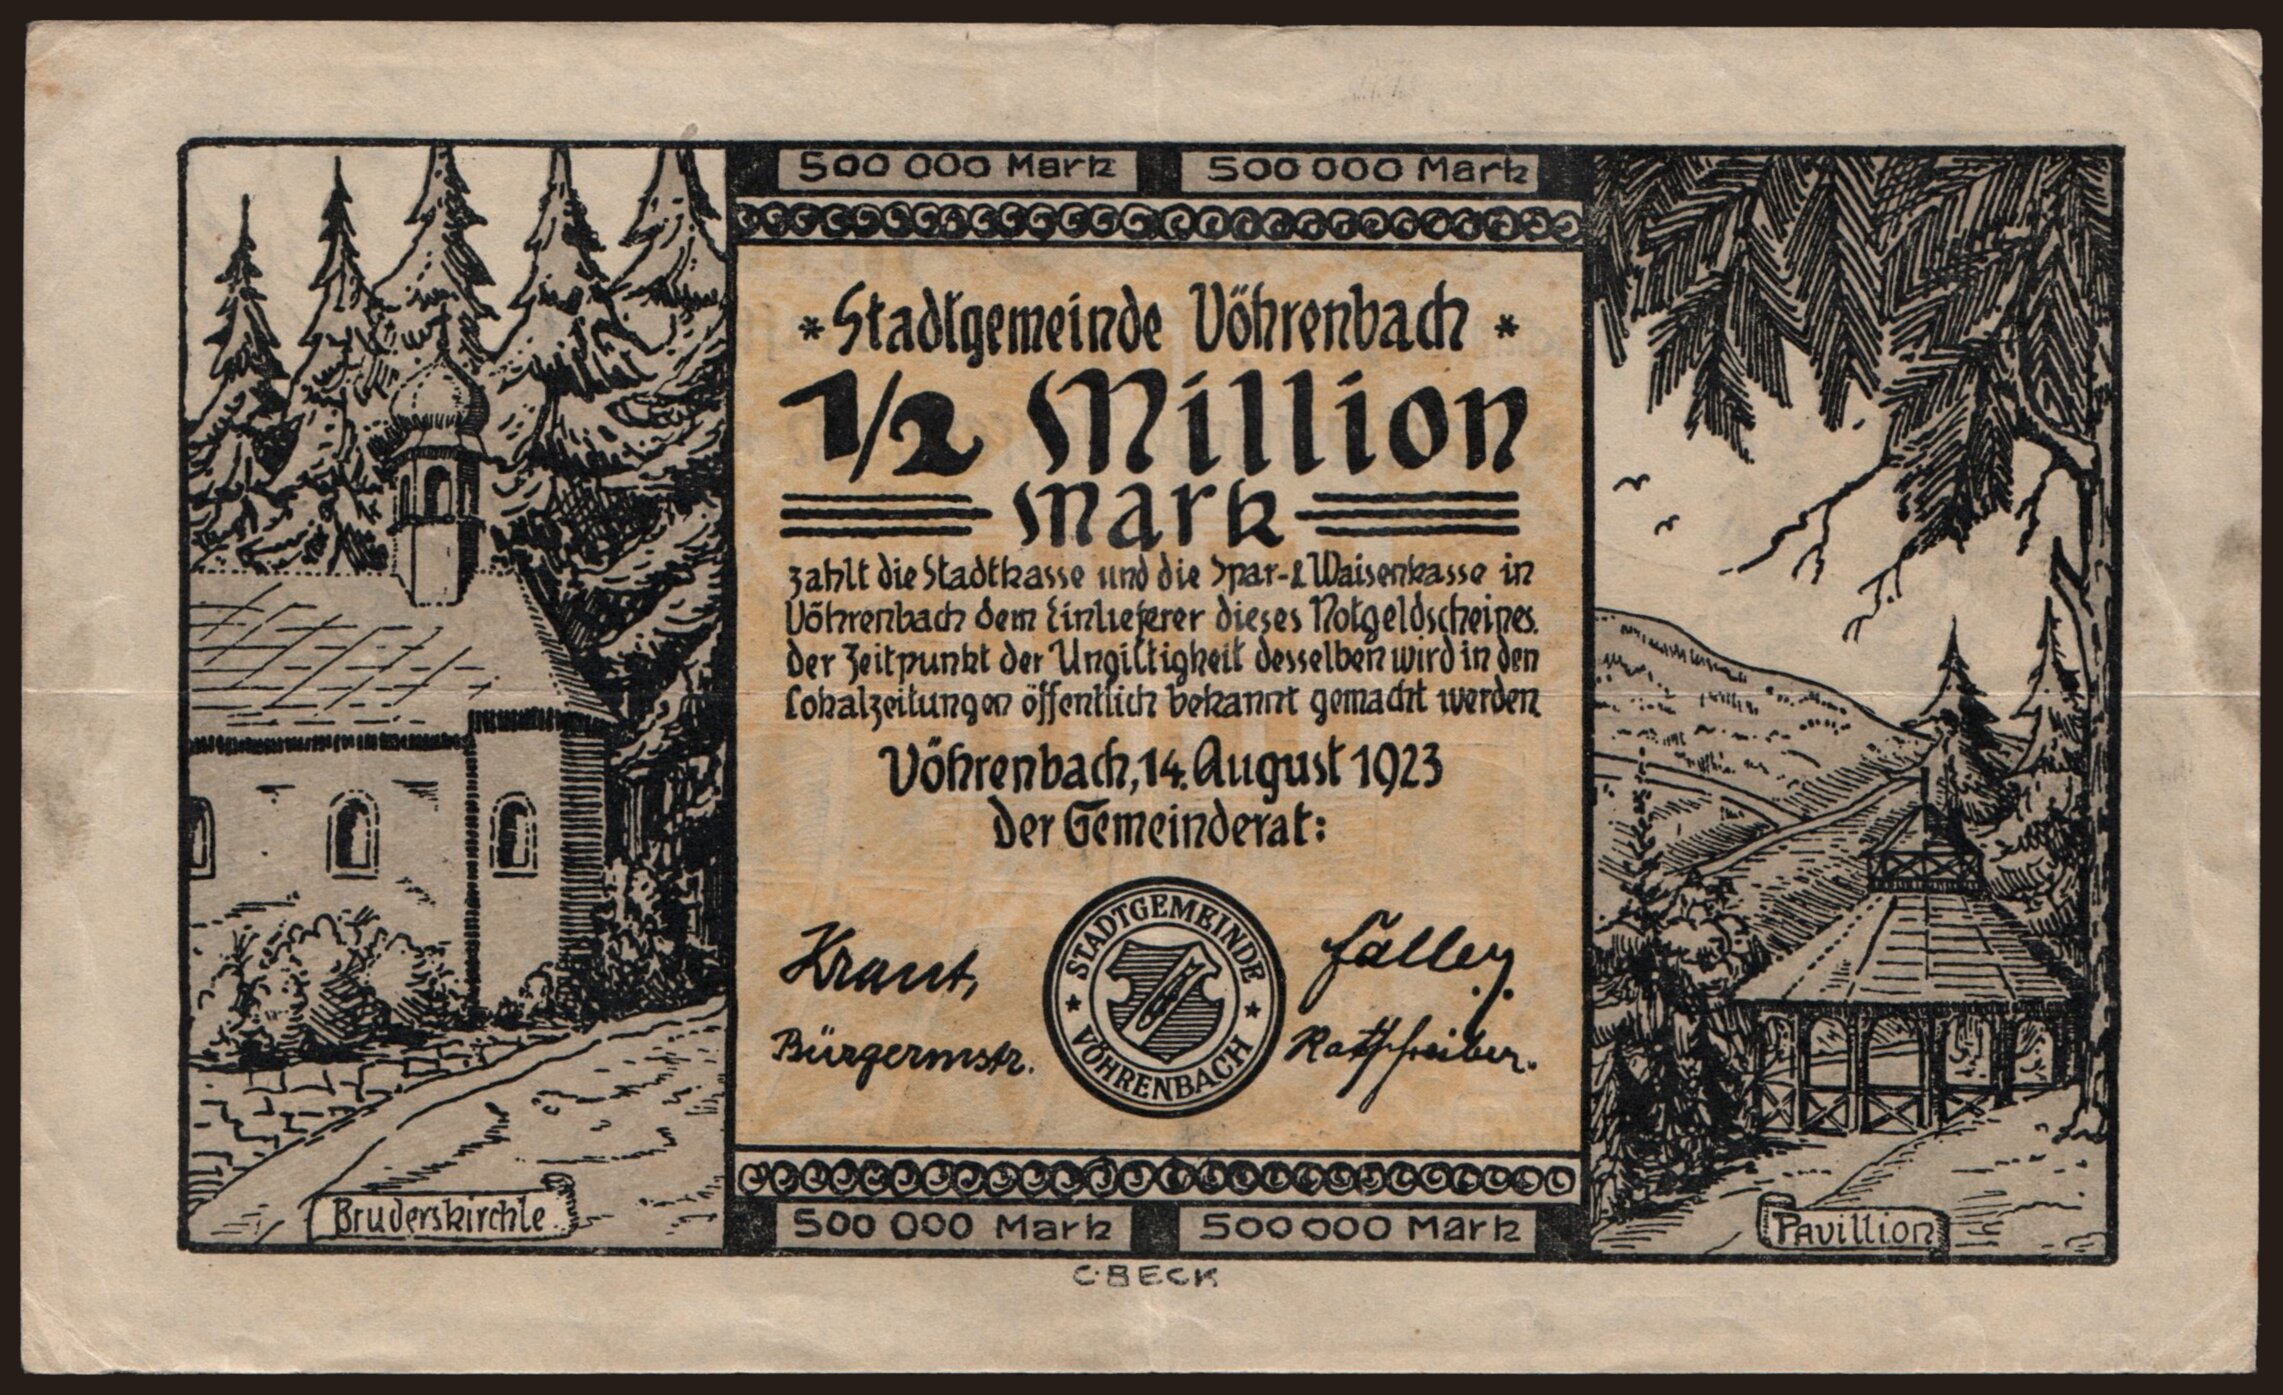 500 000 Mark 500 000 Mark
* Stadtgemeinde Vöhrenbach *
1/2 Million
Mark
zahlt die Stadtkasse und die Spar- & Waisenkasse in
Vöhrenbach dem Einlieferer dieses Notgeldscheines.
Der Zeitpunkt der Ungiltigkeit desselben wird in den
Lokalzeitungen öffentlich bekannt gemacht werden.
Vöhrenbach, 14. August 1923
Der Gemeinderat:
Kraut,
Bürgermstr.
★ STADTGEMEINDE ★
VÖHRENBACH
Ratschreiber.
Bruderskirchle
Pavillion
500 000 Mark 500 000 Mark
C. BECK